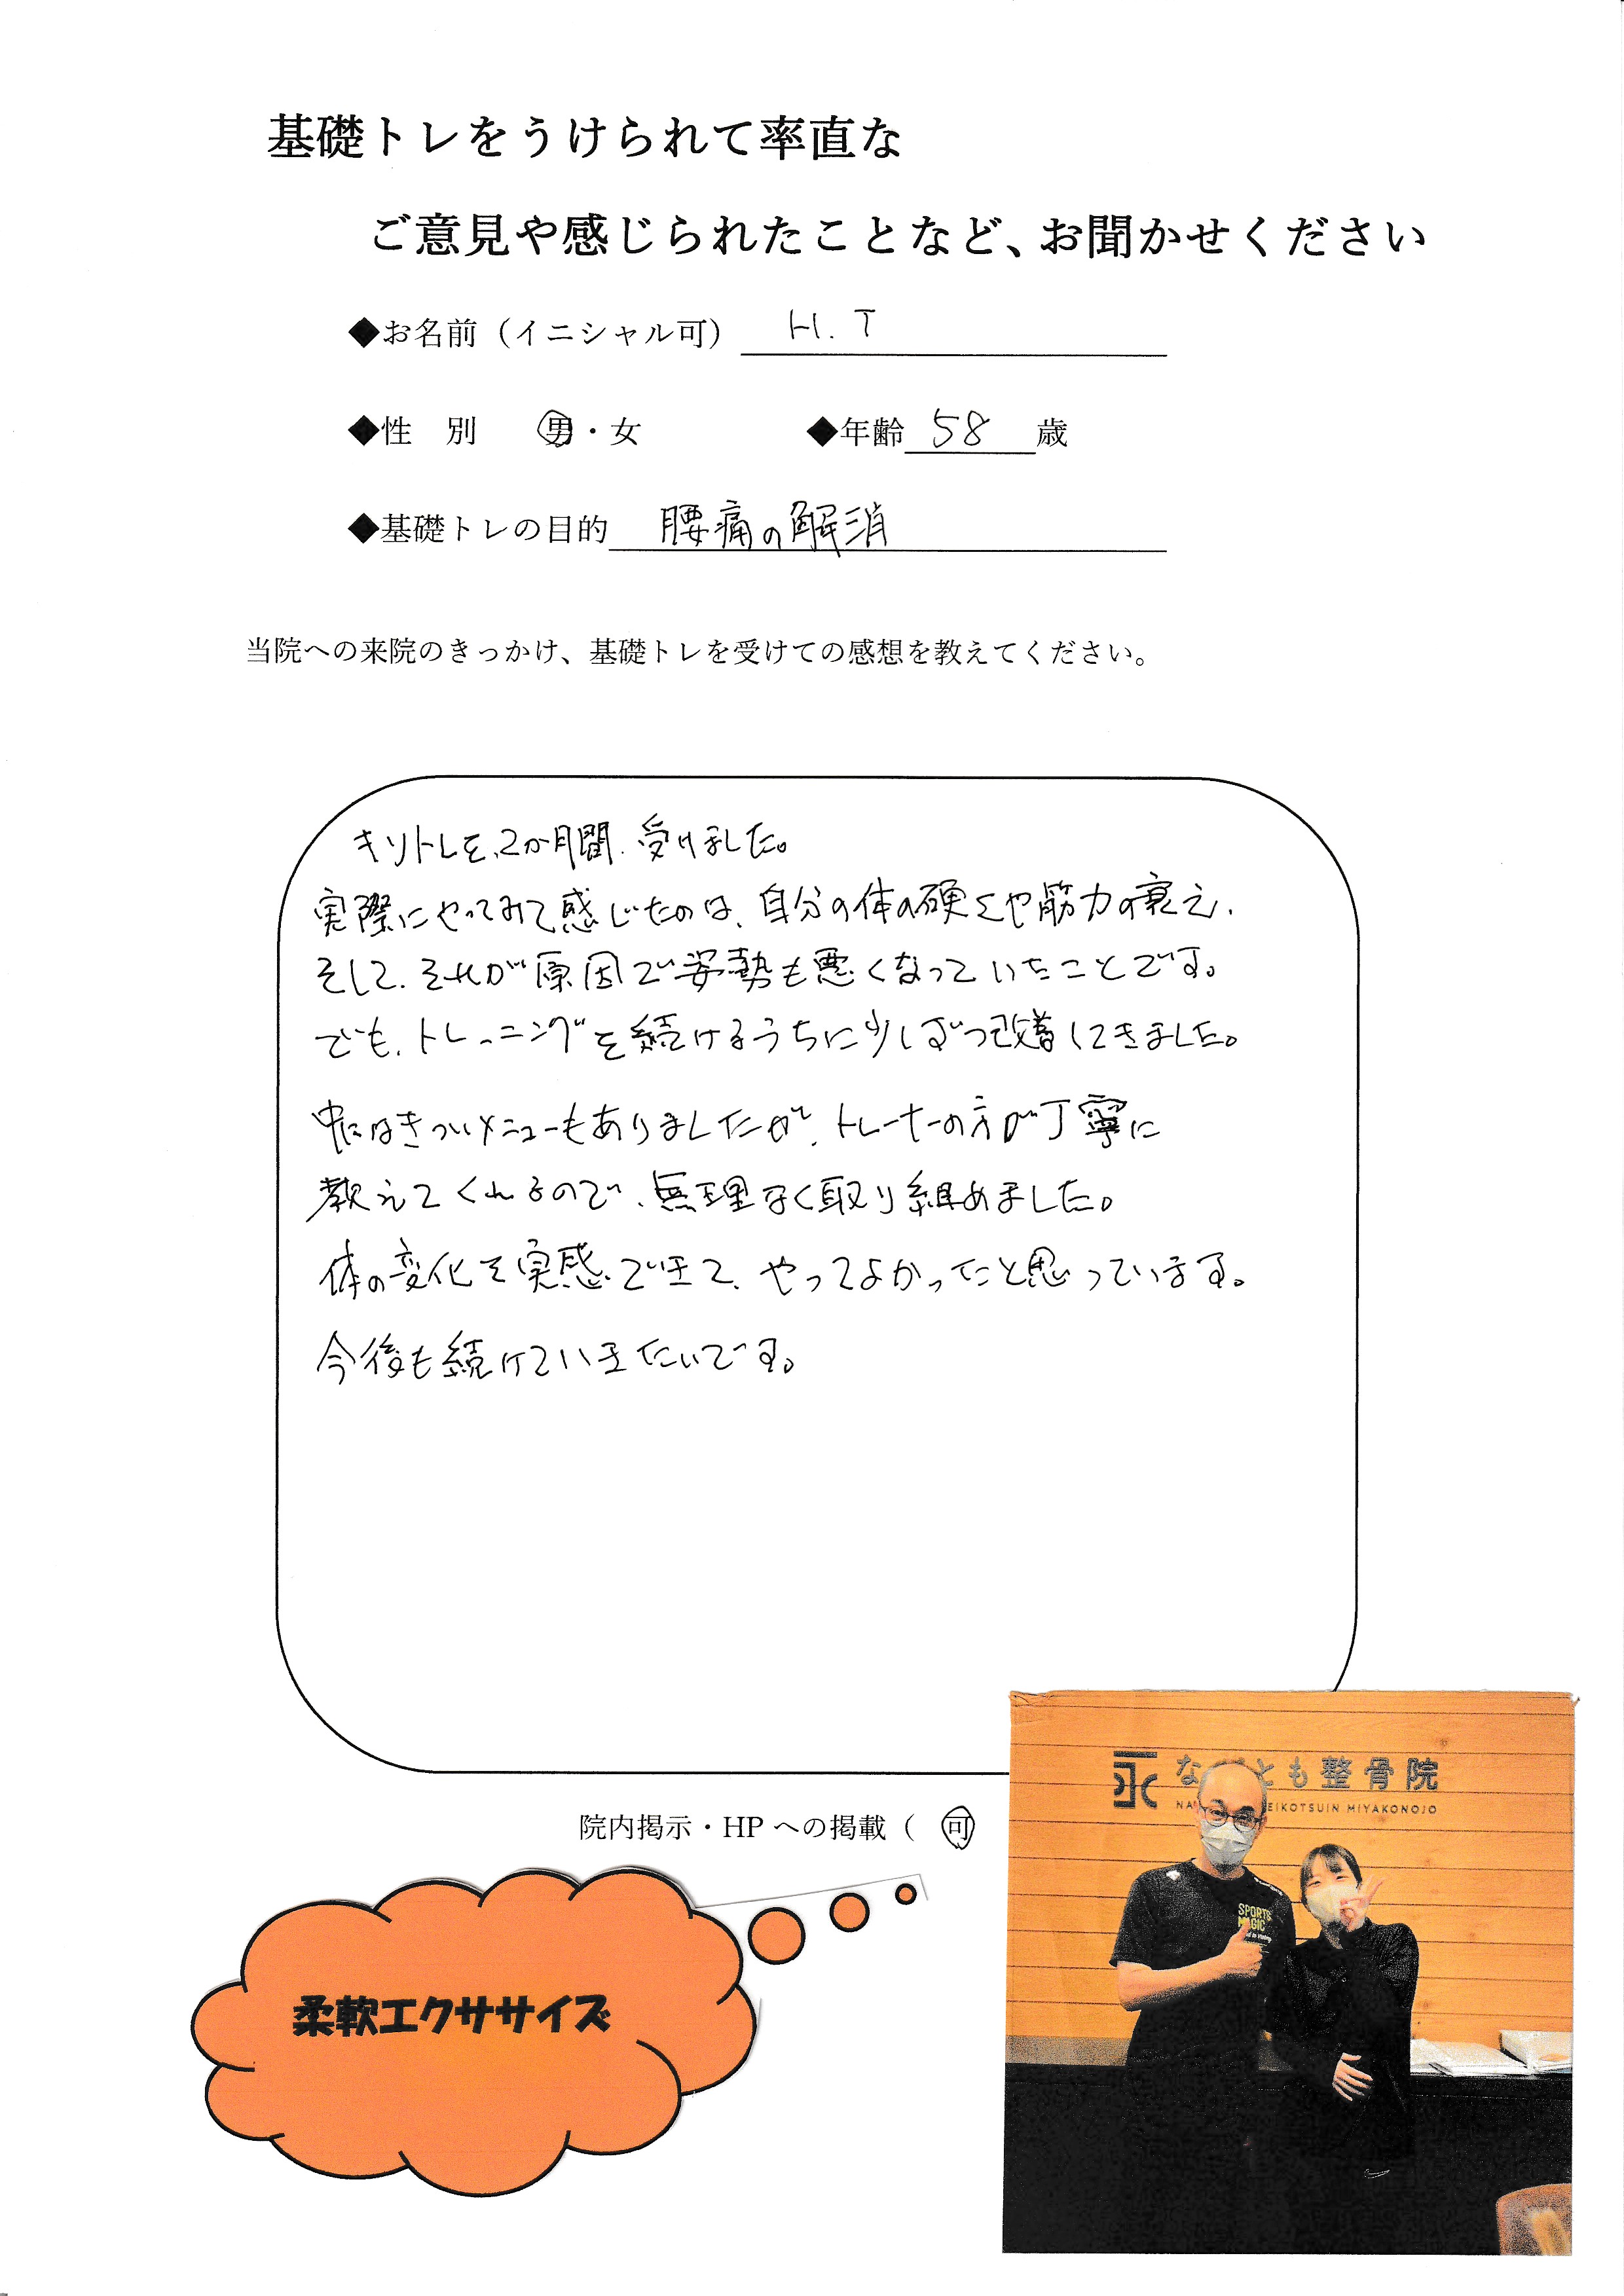 基礎トレをうけられて率直な
ご意見や感じられたことなど、お聞かせください
◆お名前（イニシャル可） H.T
◆性 別 男・女 ◆年齢 58 歳
◆基礎トレの目的 腰痛の解消
当院への来院のきっかけ、基礎トレを受けての感想を教えてください。
キソトレを、2か月間、受けました。
実際にやってみて感じたのは、自分の体の硬さや筋力の衰え、
そして、それが原因で姿勢も悪くなっていたことです。
でも、トレーニングを続けるうちに少しずつ改善してきました。
中にはきついメニューもありましたが、トレーナーの方が丁寧に
教えてくれるので、無理なく取り組めました。
体の変化を実感できて、やってよかったと思っています。
今後も続けていきたいです。
永 な とも整骨院
NA EIKOTSUIN MIYAKONOJO
院内掲示・HPへの掲載（ 可
SPORTS
MAGIC
柔軟エクササイズ